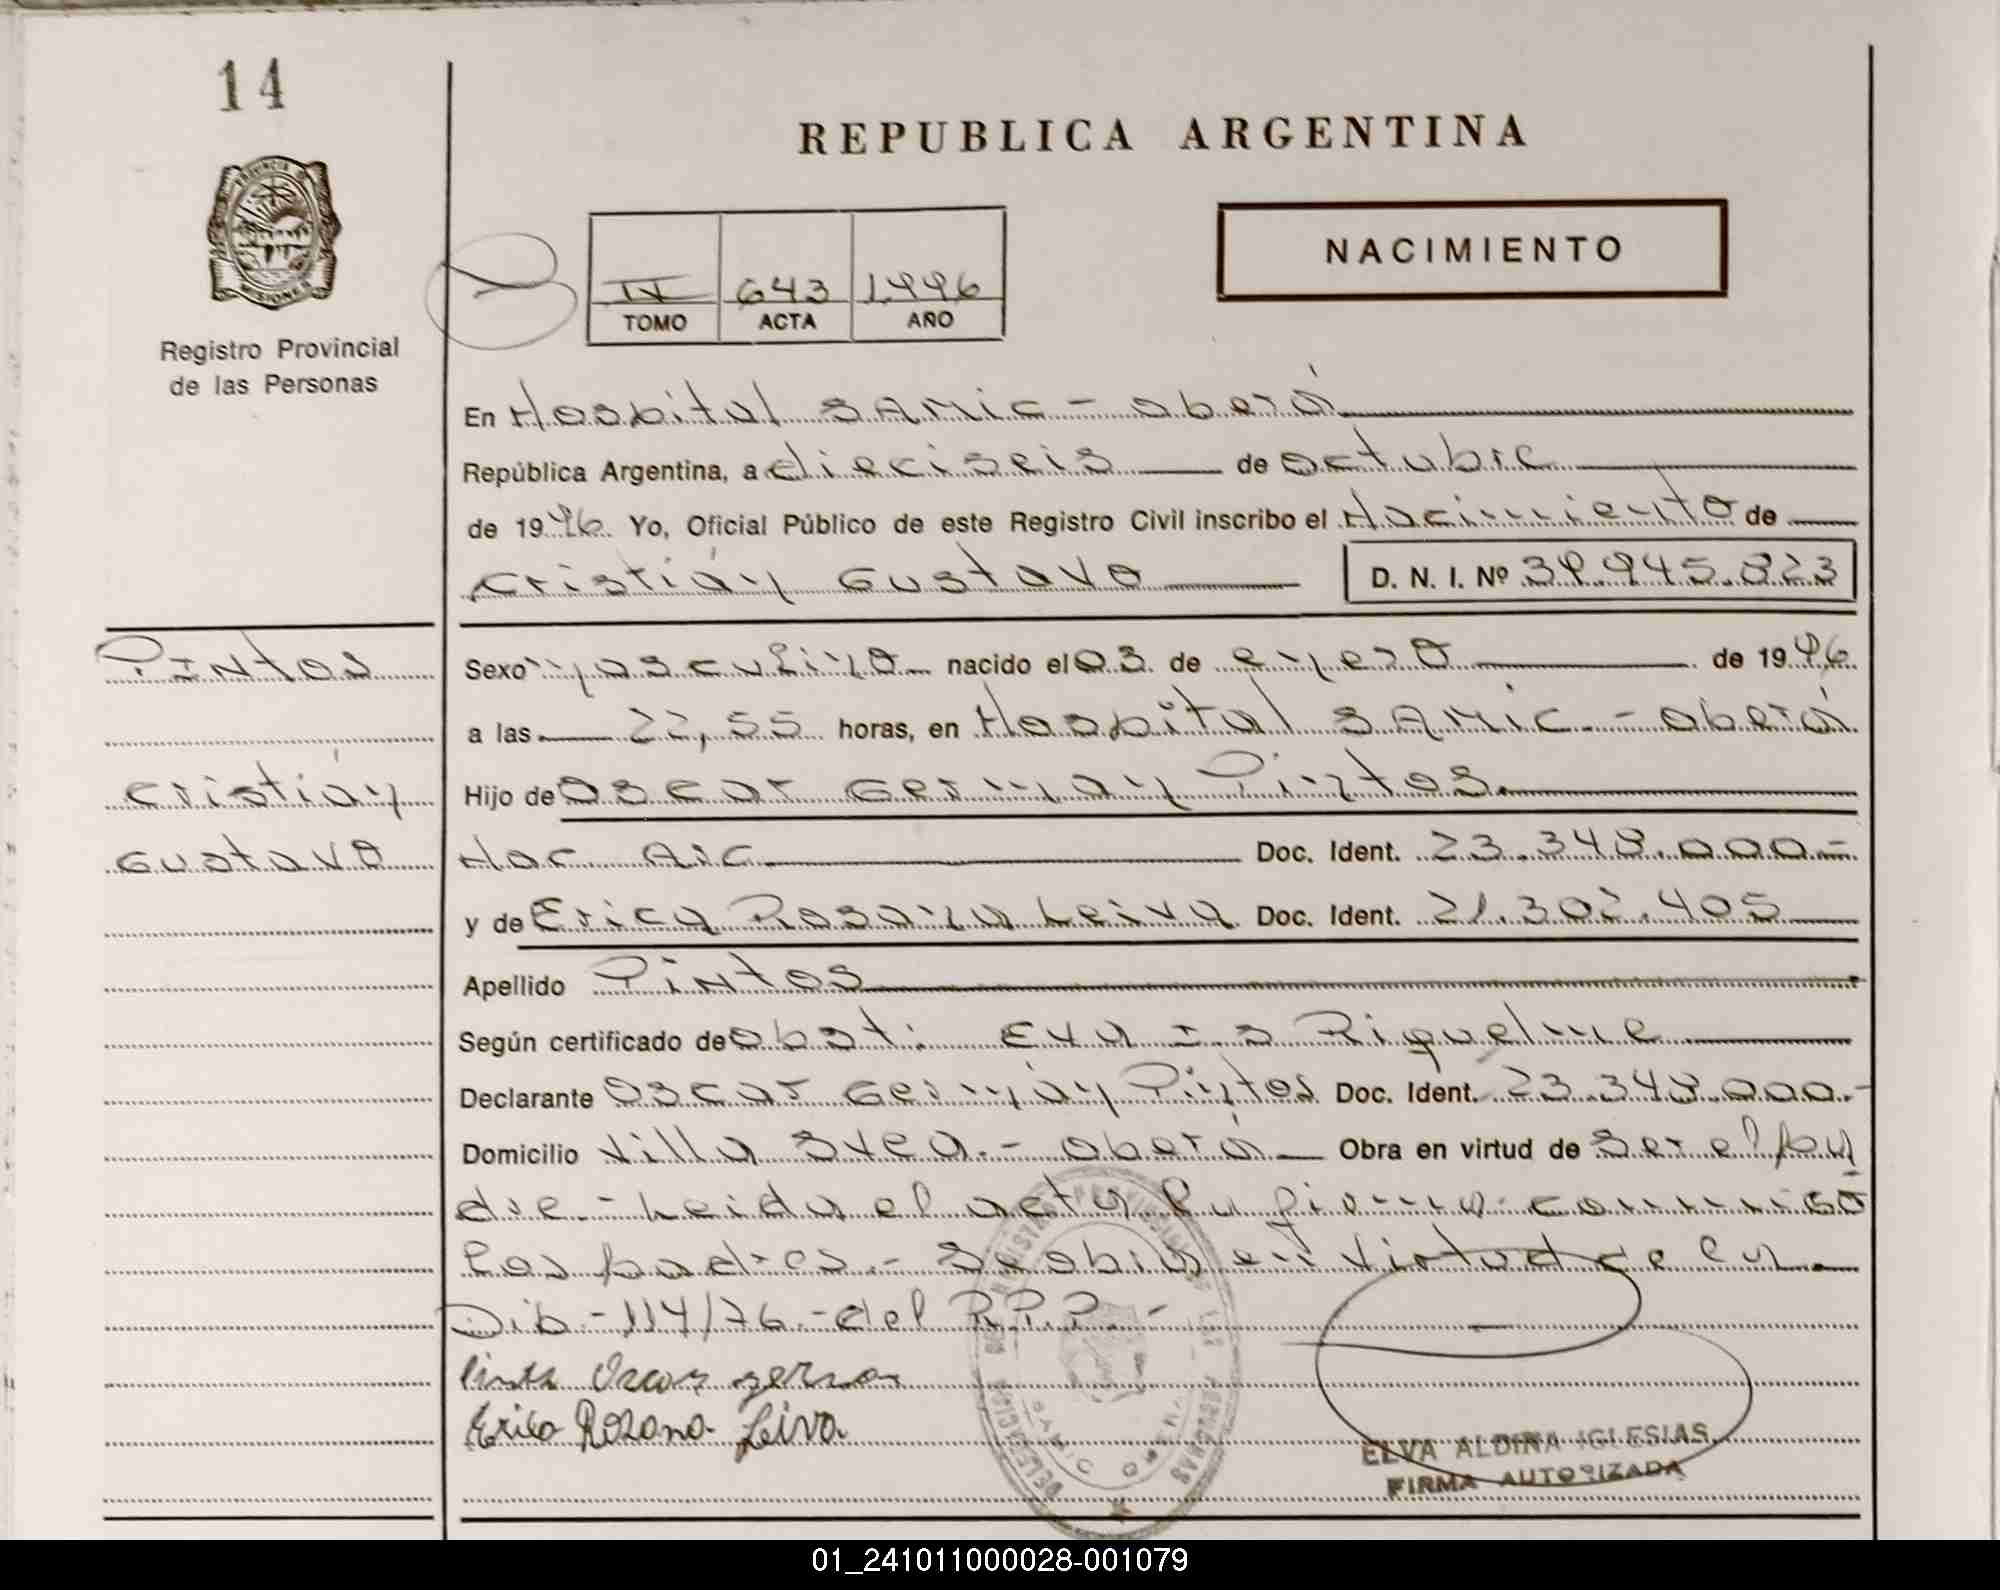 14
REPUBLICA ARGENTINA
NACIMIENTO
PROVINCIA D
MISIONES
Registro Provincial
de las Personas
IV 643 1996
TOMO ACTA AÑO
En Hospital SAMIC - Oberá
República Argentina, a dieciseis de octubre
de 1996 Yo, Oficial Público de este Registro Civil inscribo el Nacimiento de
Cristián Gustavo D. N. I. Nº 39.945.823
Pintos
Cristián
Gustavo
Sexo masculino nacido el 03 de enero de 1996
a las 22,55 horas, en Hospital SAMIC - Oberá
Hijo de Oscar German Pintos.
Nac Arg Doc. Ident. 23.348.000.-
y de Erica Rosana Leiva Doc. Ident. 21.302.405
Apellido Pintos
Según certificado de obst: Eva I. S Riquelme
Declarante Oscar Germán Pintos Doc. Ident. 23.348.000.-
Domicilio Villa Svea.- Oberá Obra en virtud de ser el pa
dre.- Leida el acta la firma conmigo
los padres.- Se obia en virtud de la
Dib-114/76.-del R.P.P.-
Oscar german
Erica Rosana Leiva
ELVA ALDINA IGLESIAS
FIRMA AUTORIZADA
01_241011000028-001079